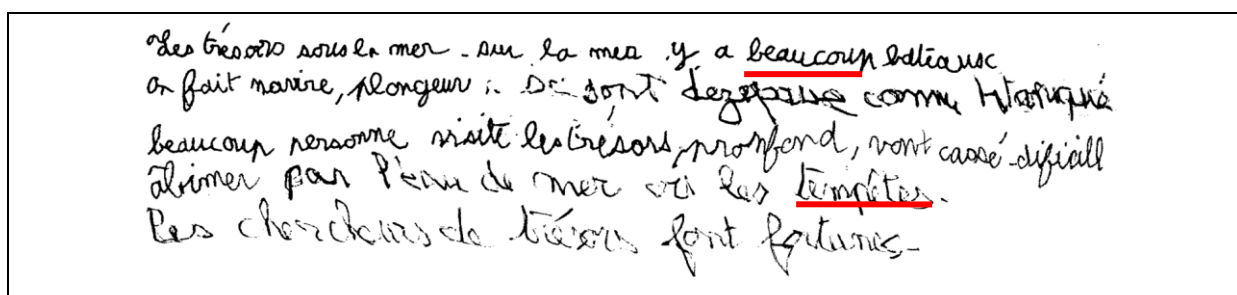 Les trésors sous la mer - sur la mer y a beaucoup bâteaux
on fait marire, plongeur : se sont comme
beaucoup personne visite les trésors, pronfond, vont cassé - dificill
âbimer par l'eau de mer les tempêtes.
Les chercheurs de trésors font fortunes -